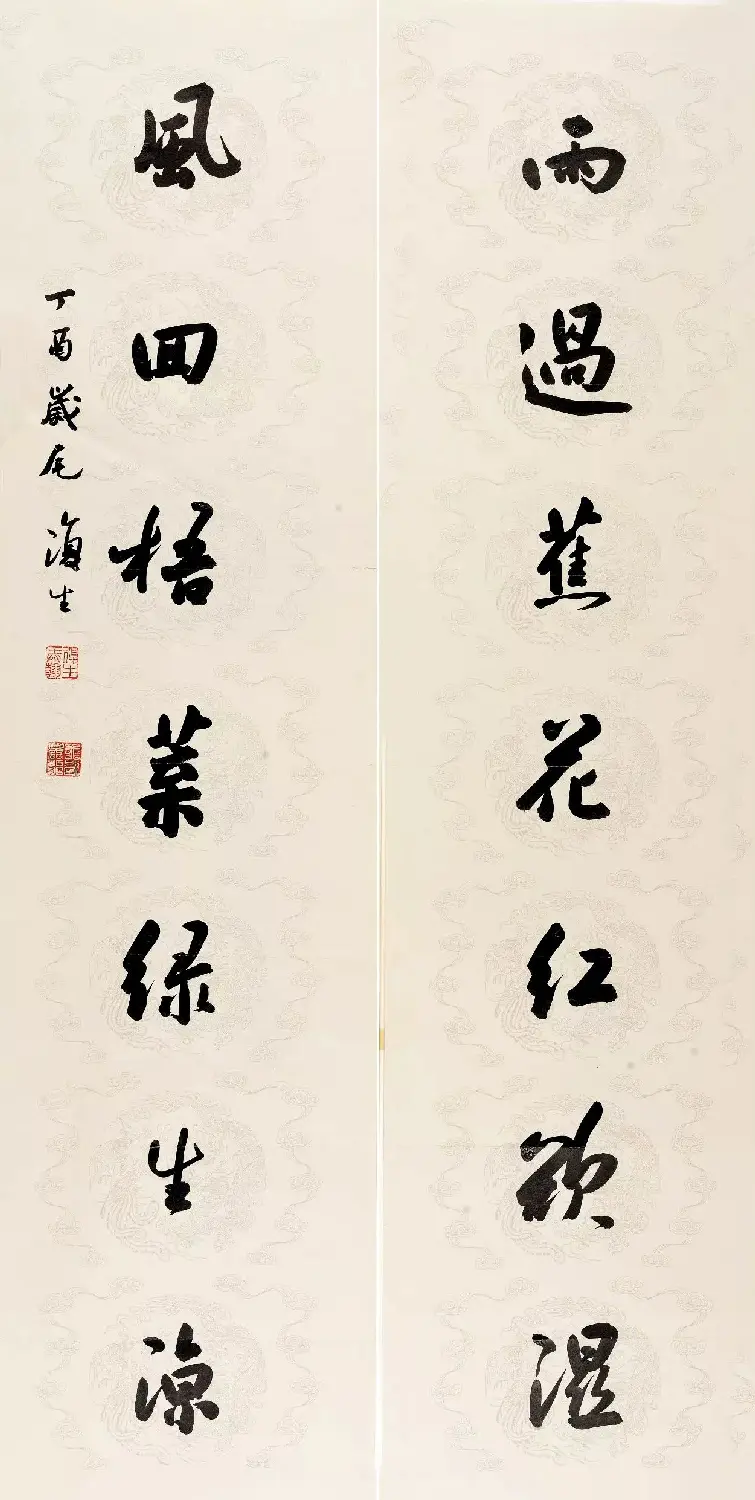 雨過蕉花红欲湿
風回梧葉绿生涼
丁酉歲尾 海生